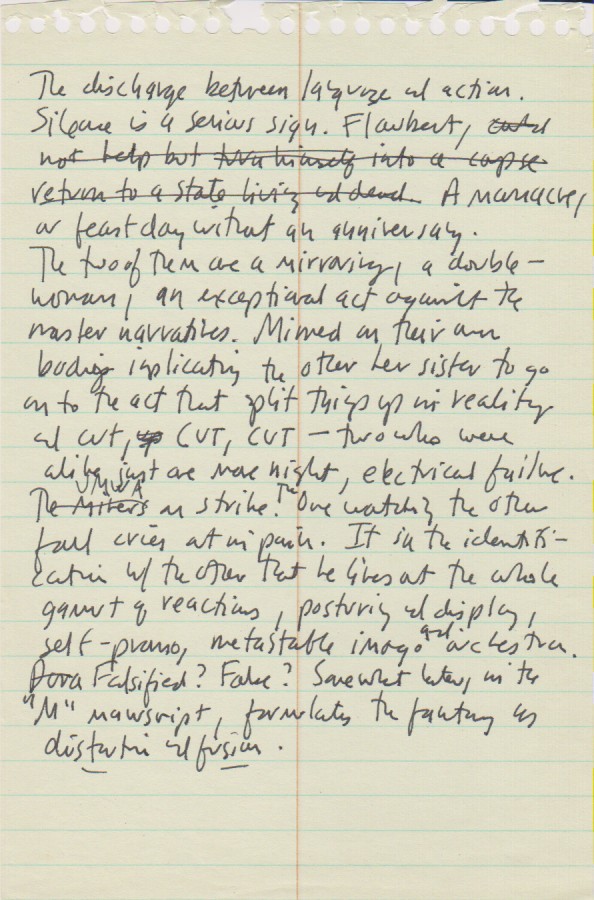 The discharge between language and action.
Silence is a serious sign. Flaubert, could
not help but turn himself into a corpse
return to a state living and dead. A massacre,
or feast day without an anniversary.
The two of them are a mirroring, a double-
woman, an exceptional act against the
master narratives. Mimed on their own
bodies implicating the other her sister to go
on to the act that split things up in reality
and cut, up CUT, CUT – two who were
alike just one more night, electrical failure.
UMWA
The Miners on strike. The One watching the other
fall cries out in pain. It is in the identifi-
cation w/ the other that he lives out the whole
gamut of reactions, posturing and display,
self-promo, metastable imago and orchestra.
Dora Falsified? False? Somewhat later, in the
"M" manuscript, formulates the fantasy as
distortion and fusion.